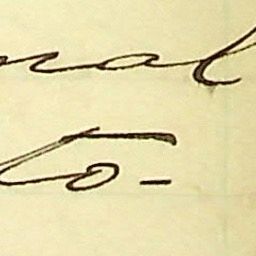 nal
to-